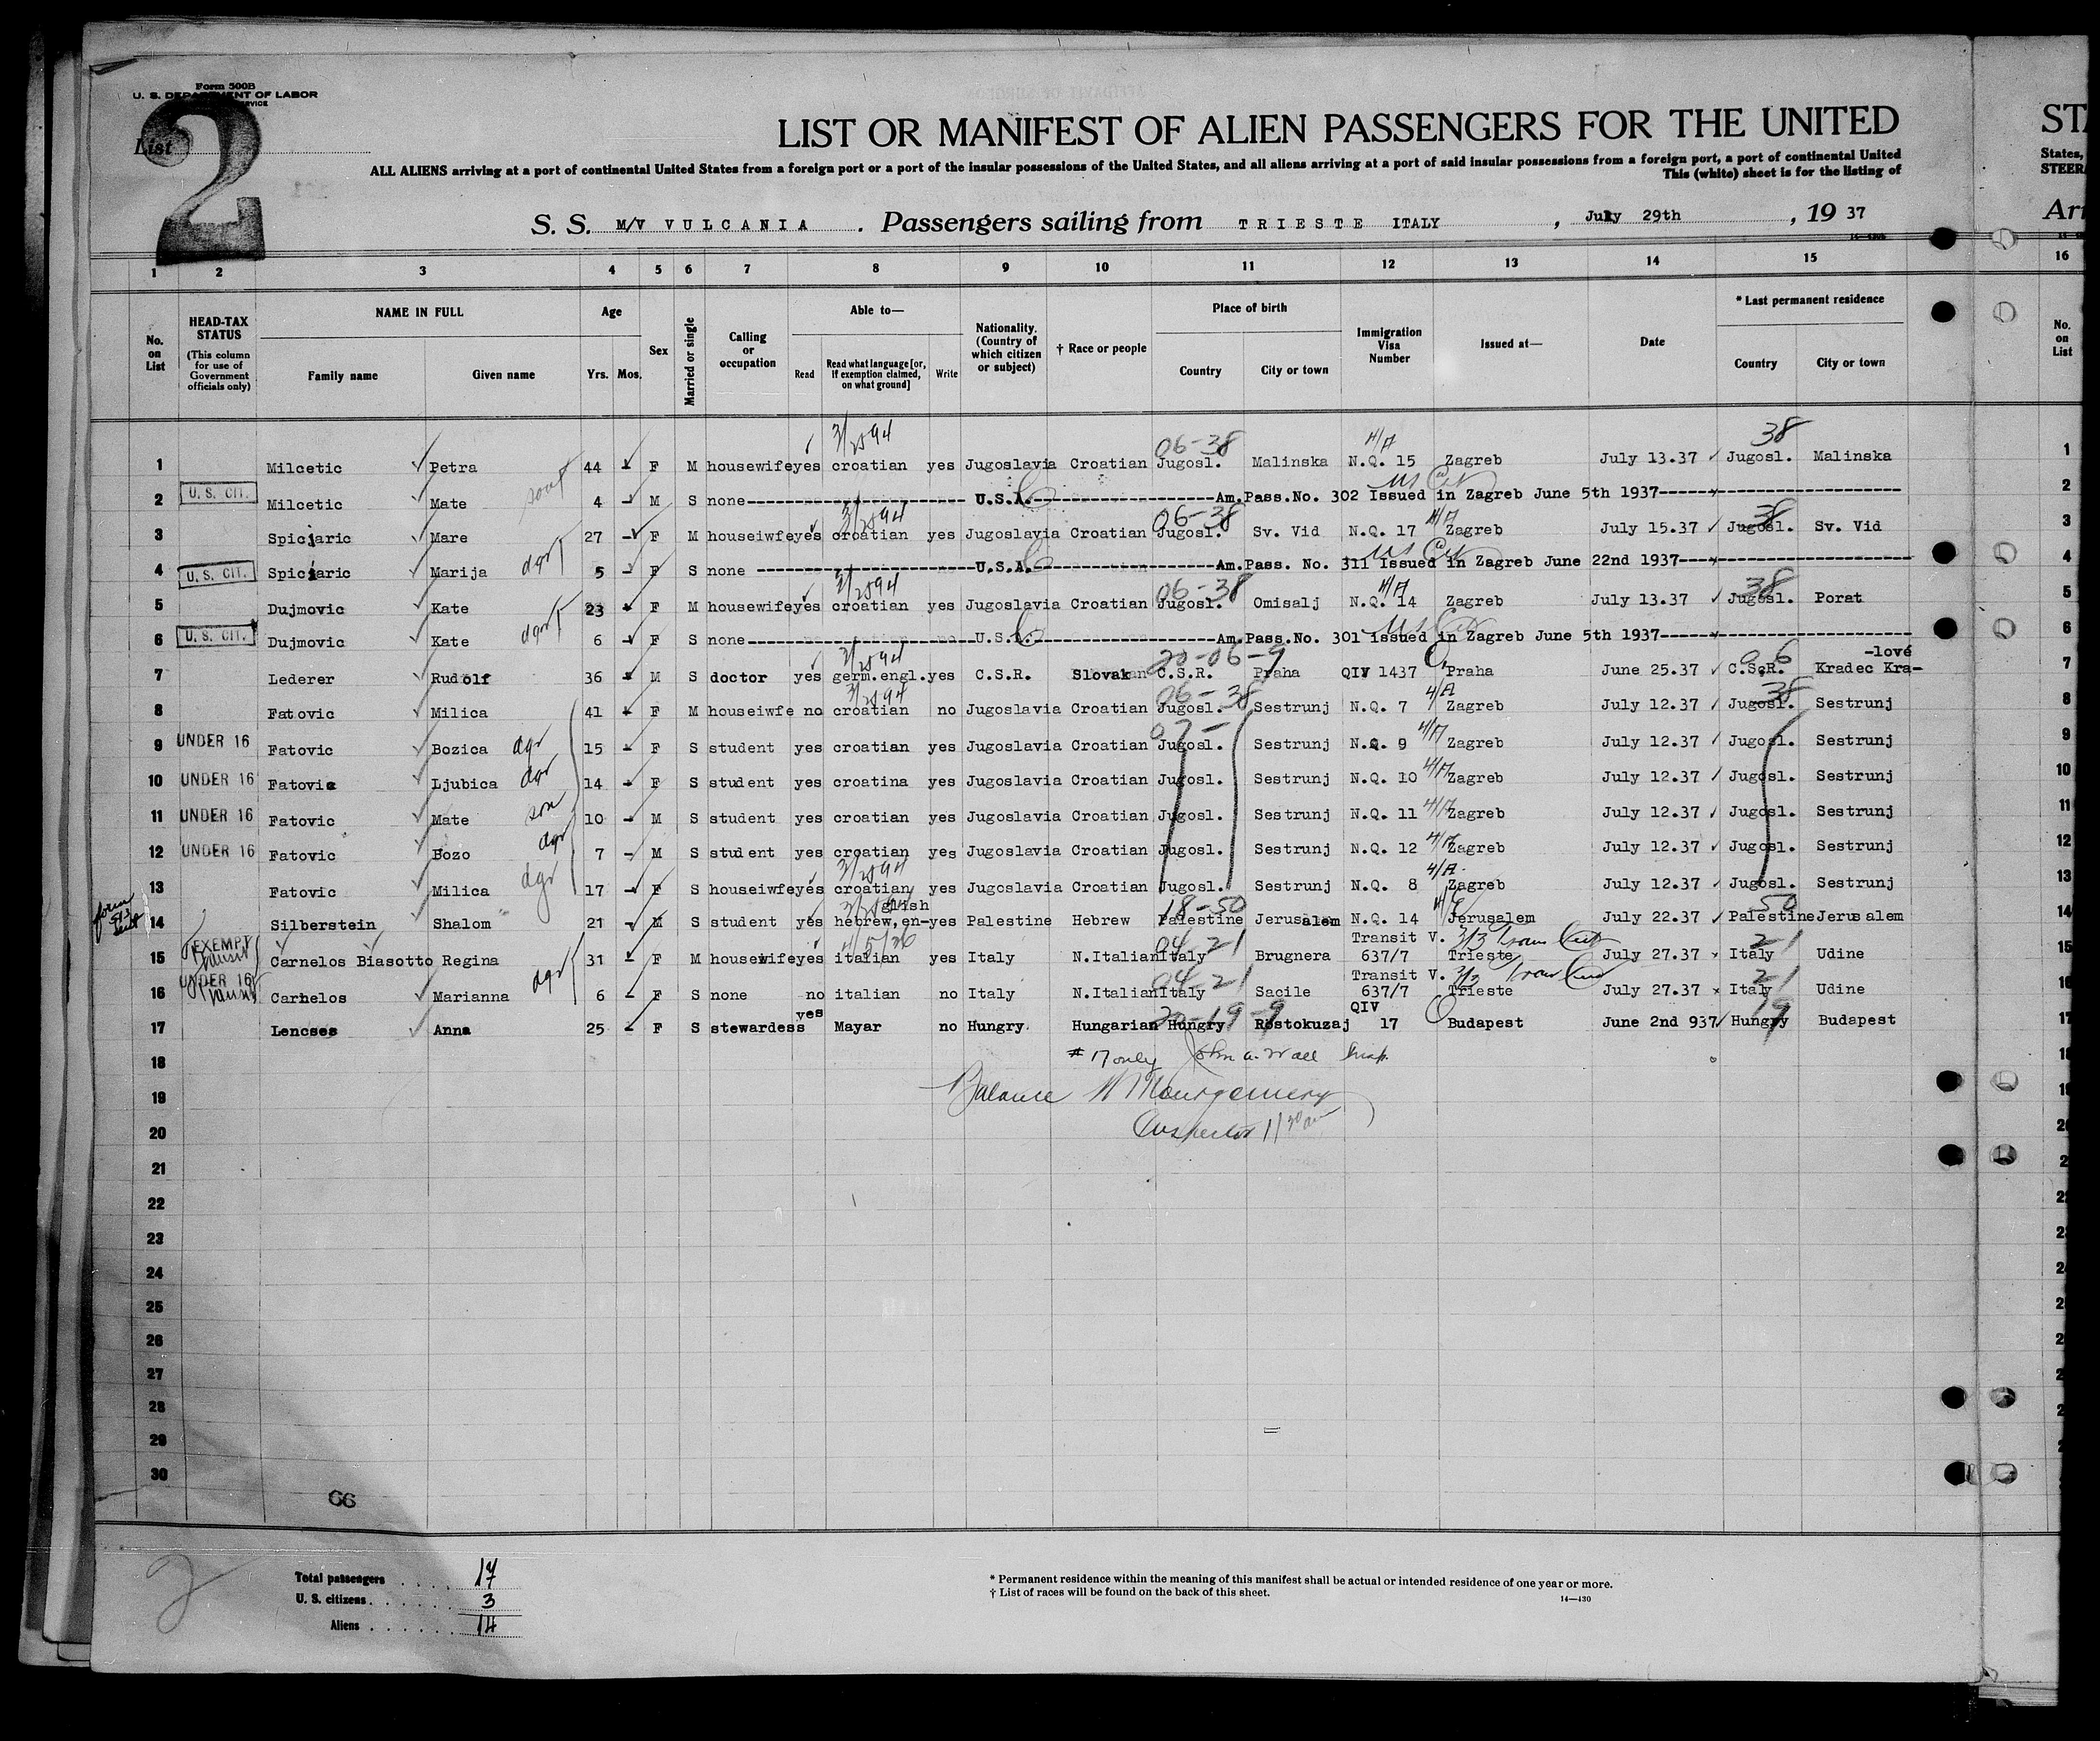 Form 500B
U. S. DEPARTMENT OF LABOR
SERVICE
List 2
LIST OR MANIFEST OF ALIEN PASSENGERS FOR THE UNITED
STA
ALL ALIENS arriving at a port of continental United States from a foreign port or a port of the insular possessions of the United States, and all aliens arriving at a port of said insular possessions from a foreign port, a port of continental United
States,
This (white) sheet is for the listing of
STEERA
S. S. M/V VULCANIA . Passengers sailing from TRIESTE ITALY , July 29th , 19 37
Arr
1 2 3 4 5 6 7 8 9 10 11 12 13 14 15 16
No. on List
HEAD-TAX STATUS (This column for use of Government officials only)
NAME IN FULL Family name Given name
Age Yrs. Mos.
Sex
Married or single
Calling or occupation
Able to— Read Read what language [or, if exemption claimed, on what ground] Write
Nationality. (Country of which citizen or subject)
† Race or people
Place of birth Country City or town
Immigration Visa Number
Issued at—
Date
* Last permanent residence Country City or town
No. on List
06-38 38
1 Milcetic Petra 44 F M housewife yes croatian yes Jugoslavia Croatian Jugosl. Malinska N.Q. 15 Zagreb July 13.37 Jugosl. Malinska 1
2 U. S. CIT. Milcetic Mate son 4 M S none U.S.A. Am.Pass.No. 302 Issued in Zagreb June 5th 1937 2
06-38 38
3 Spicjaric Mare 27 F M houseiwfe yes croatian yes Jugoslavia Croatian Jugosl. Sv. Vid N.Q. 17 Zagreb July 15.37 Jugosl. Sv. Vid 3
4 U. S. CIT. Spicjaric Marija dgr 5 F S none U.S.A. Am.Pass. No. 311 Issued in Zagreb June 22nd 1937 4
06-38 38
5 Dujmovic Kate 23 F M housewife yes croatian yes Jugoslavia Croatian Jugosl. Omisalj N.Q. 14 Zagreb July 13.37 Jugosl. Porat 5
6 U. S. CIT. Dujmovic Kate dgr 6 F S none U.S.A. Am.Pass.No. 301 issued in Zagreb June 5th 1937 6
20-06-9 -lové
7 Lederer Rudolf 36 M S doctor yes germ.engl. yes C.S.R. Slovak C.S.R. Praha QIV 1437 Praha June 25.37 C.S.R. Kradec Kra- 7
06-38 38
8 Fatovic Milica 41 F M houseiwfe no croatian no Jugoslavia Croatian Jugosl. Sestrunj N.Q. 7 4/A Zagreb July 12.37 Jugosl. Sestrunj 8
9 UNDER 16 Fatovic Bozica dgr 15 F S student yes croatian yes Jugoslavia Croatian Jugosl. Sestrunj N.Q. 9 4/A Zagreb July 12.37 Jugosl. Sestrunj 9
10 UNDER 16 Fatovic Ljubica dgr 14 F S student yes croatina yes Jugoslavia Croatian Jugosl. Sestrunj N.Q. 10 4/A Zagreb July 12.37 Jugosl. Sestrunj 10
11 UNDER 16 Fatovic Mate son 10 M S student yes croatian yes Jugoslavia Croatian Jugosl. Sestrunj N.Q. 11 4/A Zagreb July 12.37 Jugosl. Sestrunj 11
12 UNDER 16 Fatovic Bozo dgr 7 M S student yes croatian yes Jugoslavia Croatian Jugosl. Sestrunj N.Q. 12 4/A Zagreb July 12.37 Jugosl. Sestrunj 12
13 Fatovic Milica dgr 17 F S houseiwfe yes croatian yes Jugoslavia Croatian Jugosl. Sestrunj N.Q. 8 4/A Zagreb July 12.37 Jugosl. Sestrunj 13
glish 18-50 50
14 Silberstein Shalom 21 M S student yes hebrew,en- yes Palestine Hebrew Palestine Jerusalem N.Q. 14 Jerusalem July 22.37 Palestine Jerusalem 14
EXEMPT Transit 04-21 Transit V. 3/3 21
15 Carnelos Biasotto Regina 31 F M housewife yes italian yes Italy N.Italian Italy Brugnera 637/7 Trieste July 27.37 Italy Udine 15
UNDER 16 Transit 04-21 Transit V. 3/3 21
16 Carnelos Marianna dgr 6 F S none no italian no Italy N.Italian Italy Sacile 637/7 Trieste July 27.37 Italy Udine 16
yes 20-19-9 QIV 19
17 Lencses Anna 25 F S stewardess Mayar no Hungry Hungarian Hungry Rostokuzaj 17 Budapest June 2nd 937 Hungry Budapest 17
# 17 only John A. Wall Insp.
18
Balance W Montgomery
19
Inspector
20
21
22
23
24
25
26
27
28
29
30
66
2
Total passengers . . . . 17
U. S. citizens . . . . . . 3
Aliens . . . . . . 14
* Permanent residence within the meaning of this manifest shall be actual or intended residence of one year or more.
† List of races will be found on the back of this sheet.
14—430